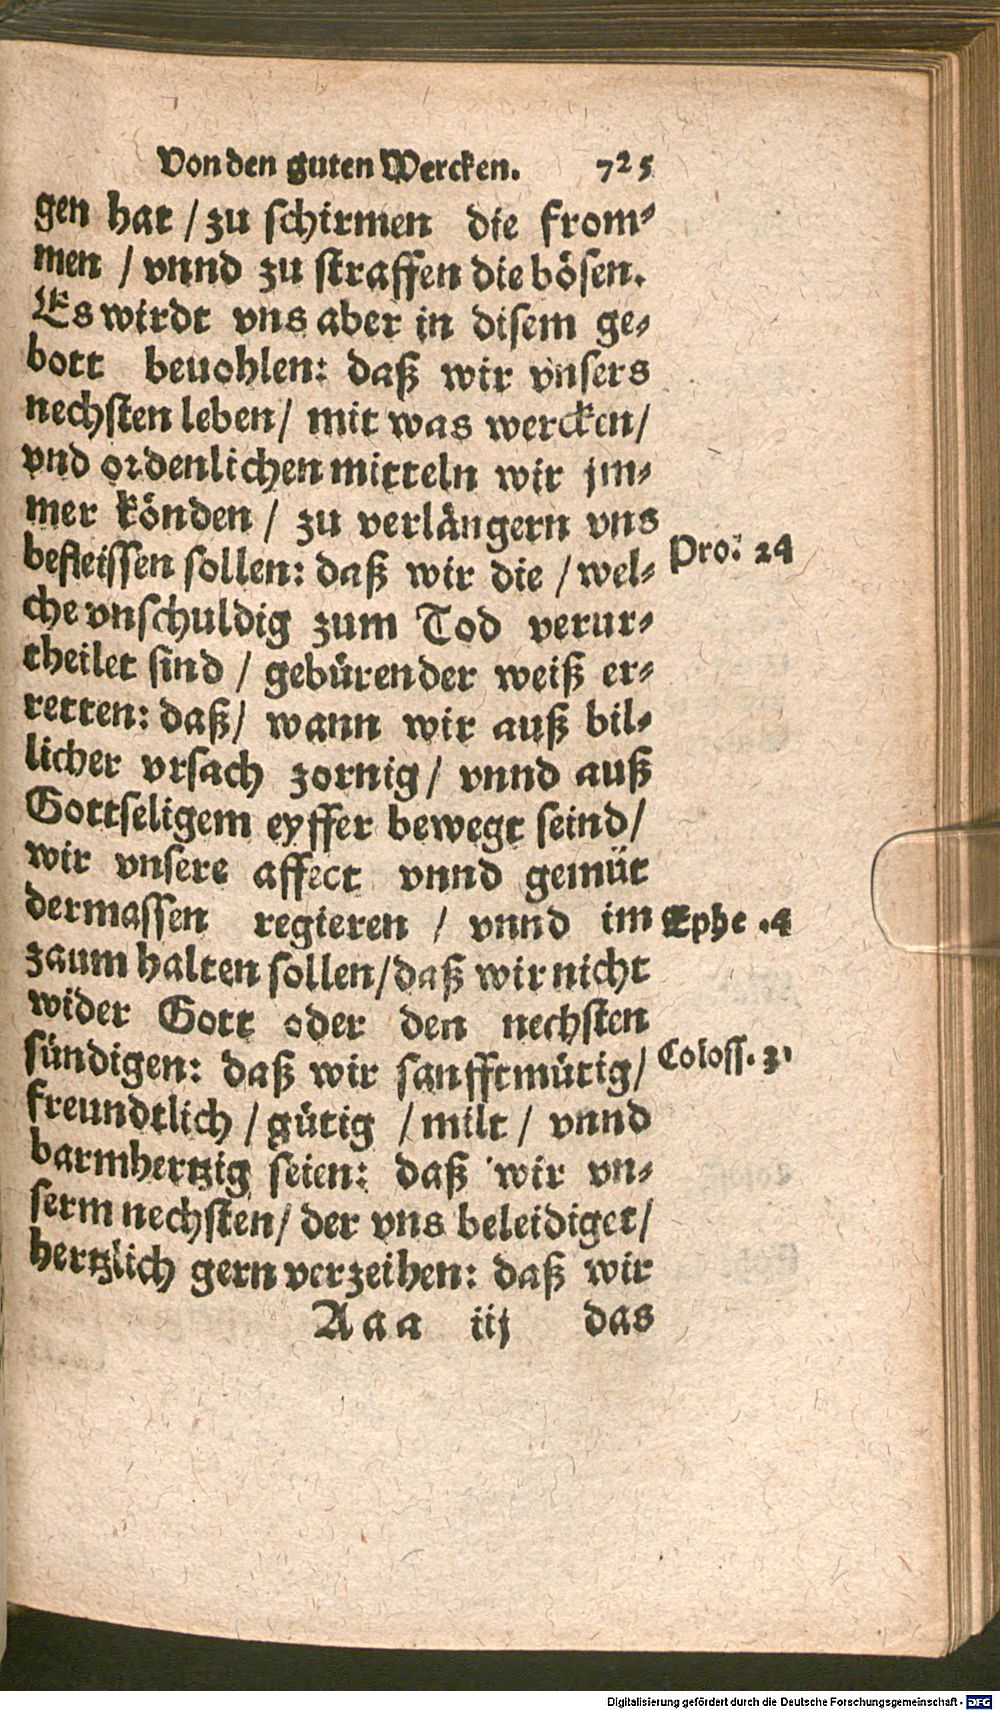 Von den guten Wercken. 725
gen hat / zu schirmen die from⸗
men / vnnd zu straffen die bösen.
Es wirdt vns aber in disem ge⸗
bott beuohlen: daß wir vnsers
nechsten leben / mit was wercken /
vnd ordenlichen mitteln wir jm⸗
mer könden / zu verlängern vns
befleissen sollen: daß wir die / wel⸗ Pro: 24
che vnschuldig zum Tod verur⸗
theilet sind / gebürender weiß er⸗
retten: daß / wann wir auß bil⸗
licher vrsach zornig / vnnd auß
Gottseligem eyffer bewegt seind /
wir vnsere affect vnnd gemüt
dermassen regieren / vnnd im Ephe .4
zaum halten sollen / daß wir nicht
wider Gott oder den nechsten
sündigen: daß wir sanfftmütig / Coloss. 3.
freundtlich / gütig / milt / vnnd
barmhertzig seien: daß wir vn⸗
serm nechsten / der vns beleidiget /
hertzlich gern verzeihen: daß wir
Aaa iij das
Digitalisierung gefördert durch die Deutsche Forschungsgemeinschaft - DFG